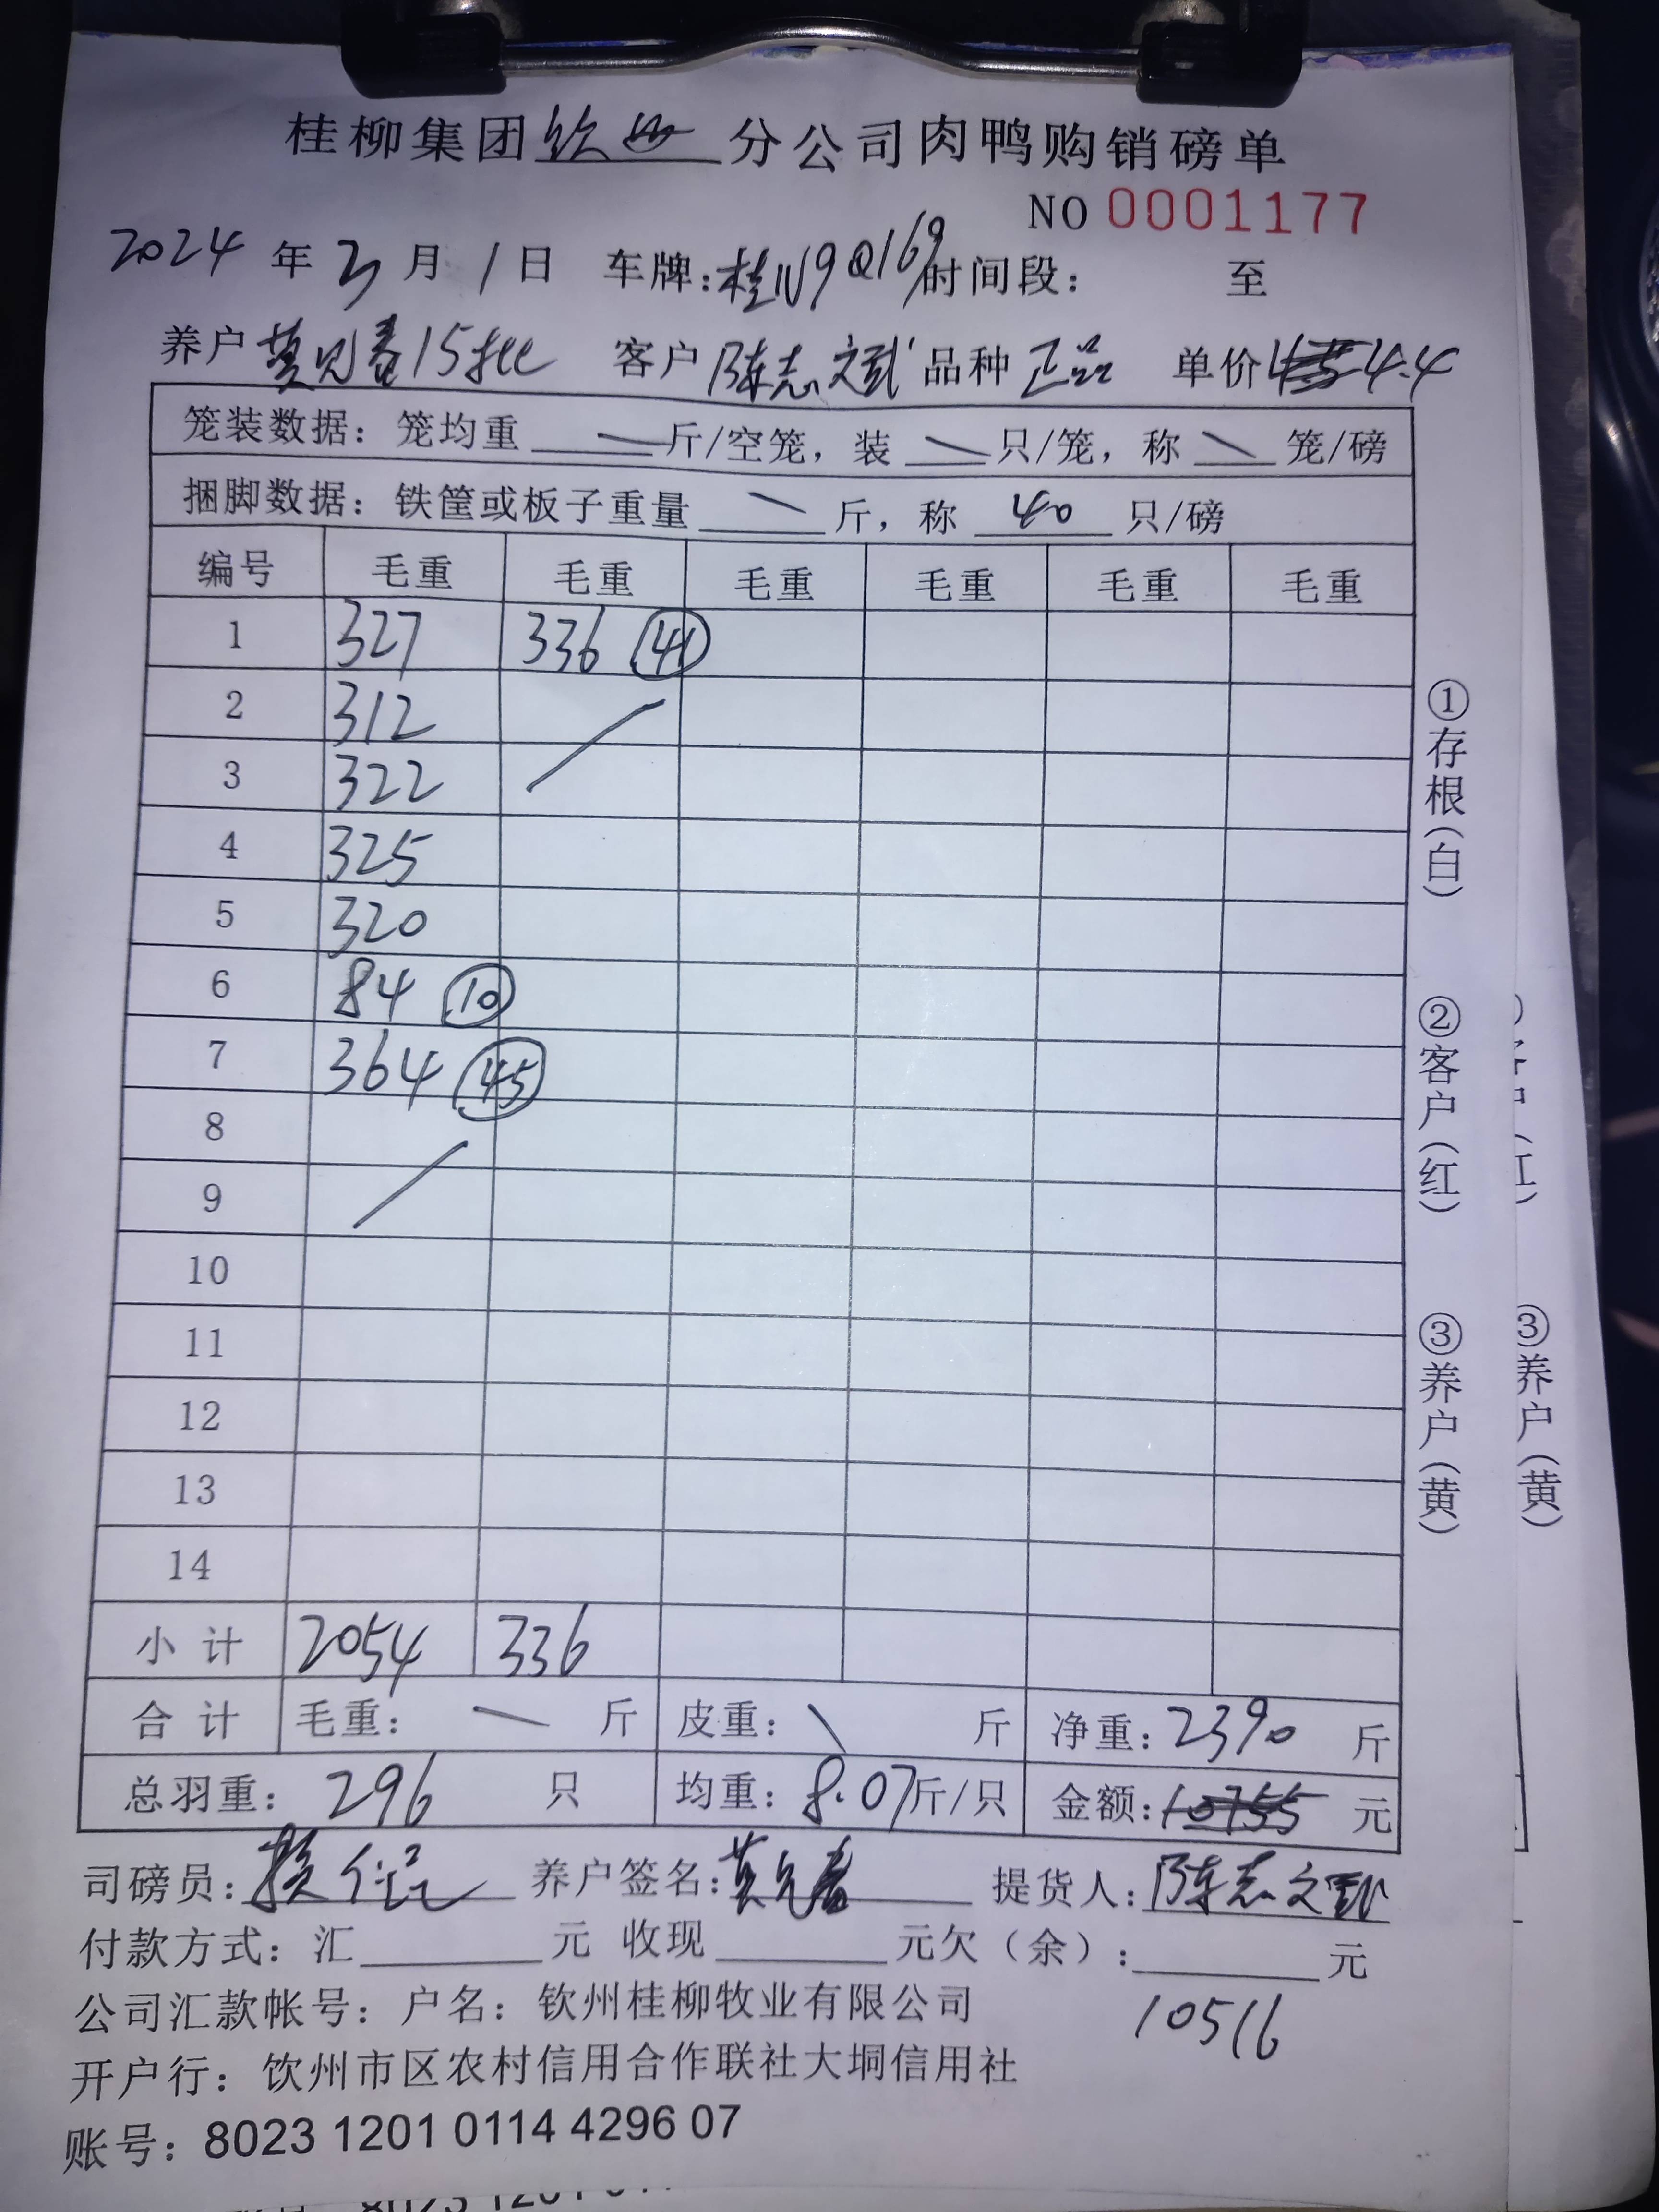 桂柳集团钦州分公司肉鸭购销磅单
NO 0001177
2024 年 3 月 1 日 车牌:桂N9Q169 时间段: 至
养户 莫见春15批 客户 陈志斌 品种 正品 单价 4.4
笼装数据: 笼均重 — 斤/空笼, 装 \ 只/笼, 称 \ 笼/磅
捆脚数据: 铁筐或板子重量 \ 斤, 称 40 只/磅
编号 毛重 毛重 毛重 毛重 毛重 毛重
1 327 336 41
2 312
3 322
4 325
5 320
6 84 10
7 364 45
8
9
10
11
12
13
14
小 计 2054 336
合 计 毛重: \ 斤 皮重: \ 斤 净重: 2390 斤
总羽重: 296 只 均重: 8.07 斤/只 金额: 10755 元
司磅员: 养户签名: 莫见春 提货人: 陈志斌
付款方式: 汇 元 收现 元欠(余): 元
10516
公司汇款帐号: 户名: 钦州桂柳牧业有限公司
开户行: 钦州市区农村信用合作联社大垌信用社
账号: 8023 1201 0114 4296 07
①存根(白)
②客户(红)
③养户(黄)
③养户(黄)